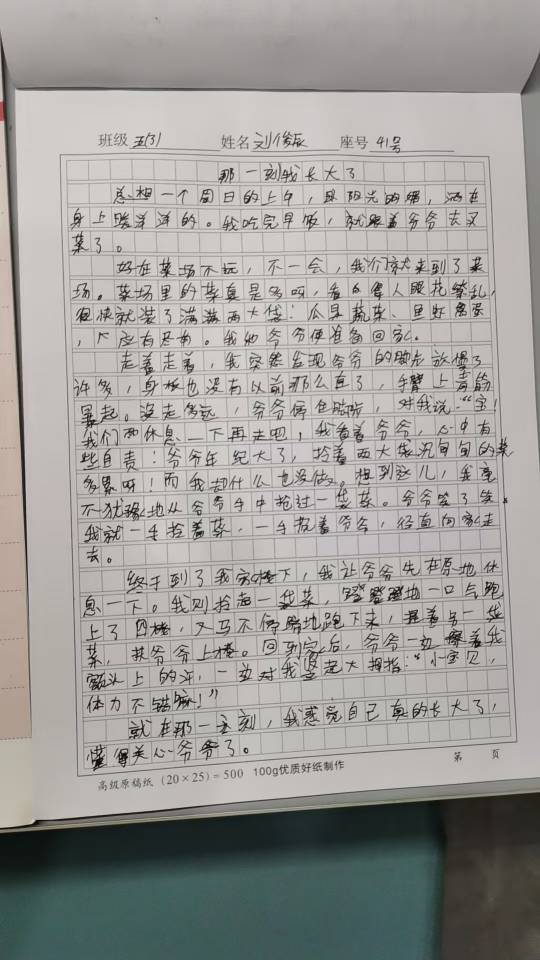 班级 五(3) 姓名 刘俊辰 座号 41号
那一刻我长大了
总想一个周日的上午，阳光明媚，洒在
身上暖洋洋的。我吃完早饭，就跟着爷爷去买
菜了。
好在菜场不远，不一会，我们就来到了菜
场。菜场里的菜真是多呀，看的人眼花缭乱，
很快就装了满满两大袋：瓜果蔬菜、鱼虾禽蛋，
应有尽有。我和爷爷便准备回家。
走着走着，我突然发现爷爷的脚步放慢了
许多，身板也没有以前那么直了，手臂上青筋
暴起。没走多远，爷爷停住脚步，对我说：“宝！
我们两休息一下再走吧，我看着爷爷，心中有
些自责：爷爷年纪大了，拎着两大袋沉甸甸的菜
多累呀！而我却什么也没做。想到这儿，我毫
不犹豫地从爷爷手中抢过一袋菜。爷爷笑了笑。
我就一手拎着菜，一手扶着爷爷，径直向家走
去。
终于到了我家楼下，我让爷爷先在原地休
息一下。我则拎起一袋菜，噔噔噔地一口气跑
上了四楼，又马不停蹄地跑下来，提着另一袋
菜，扶爷爷上楼。回到家后，爷爷一边擦着我
额头上的汗，一边对我竖起大拇指：“小宝贝，
体力不错嘛！”
就在那一刻，我感觉自己真的长大了，
懂得关心爷爷了。
高级原稿纸 (20×25)=500 100g优质好纸制作 第 页